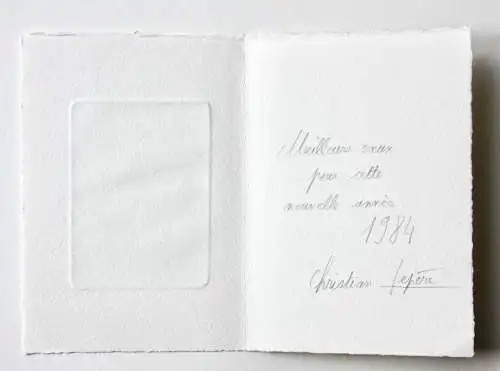 Meilleurs vœux
pour cette
nouvelle année
1984
Christian Lepère